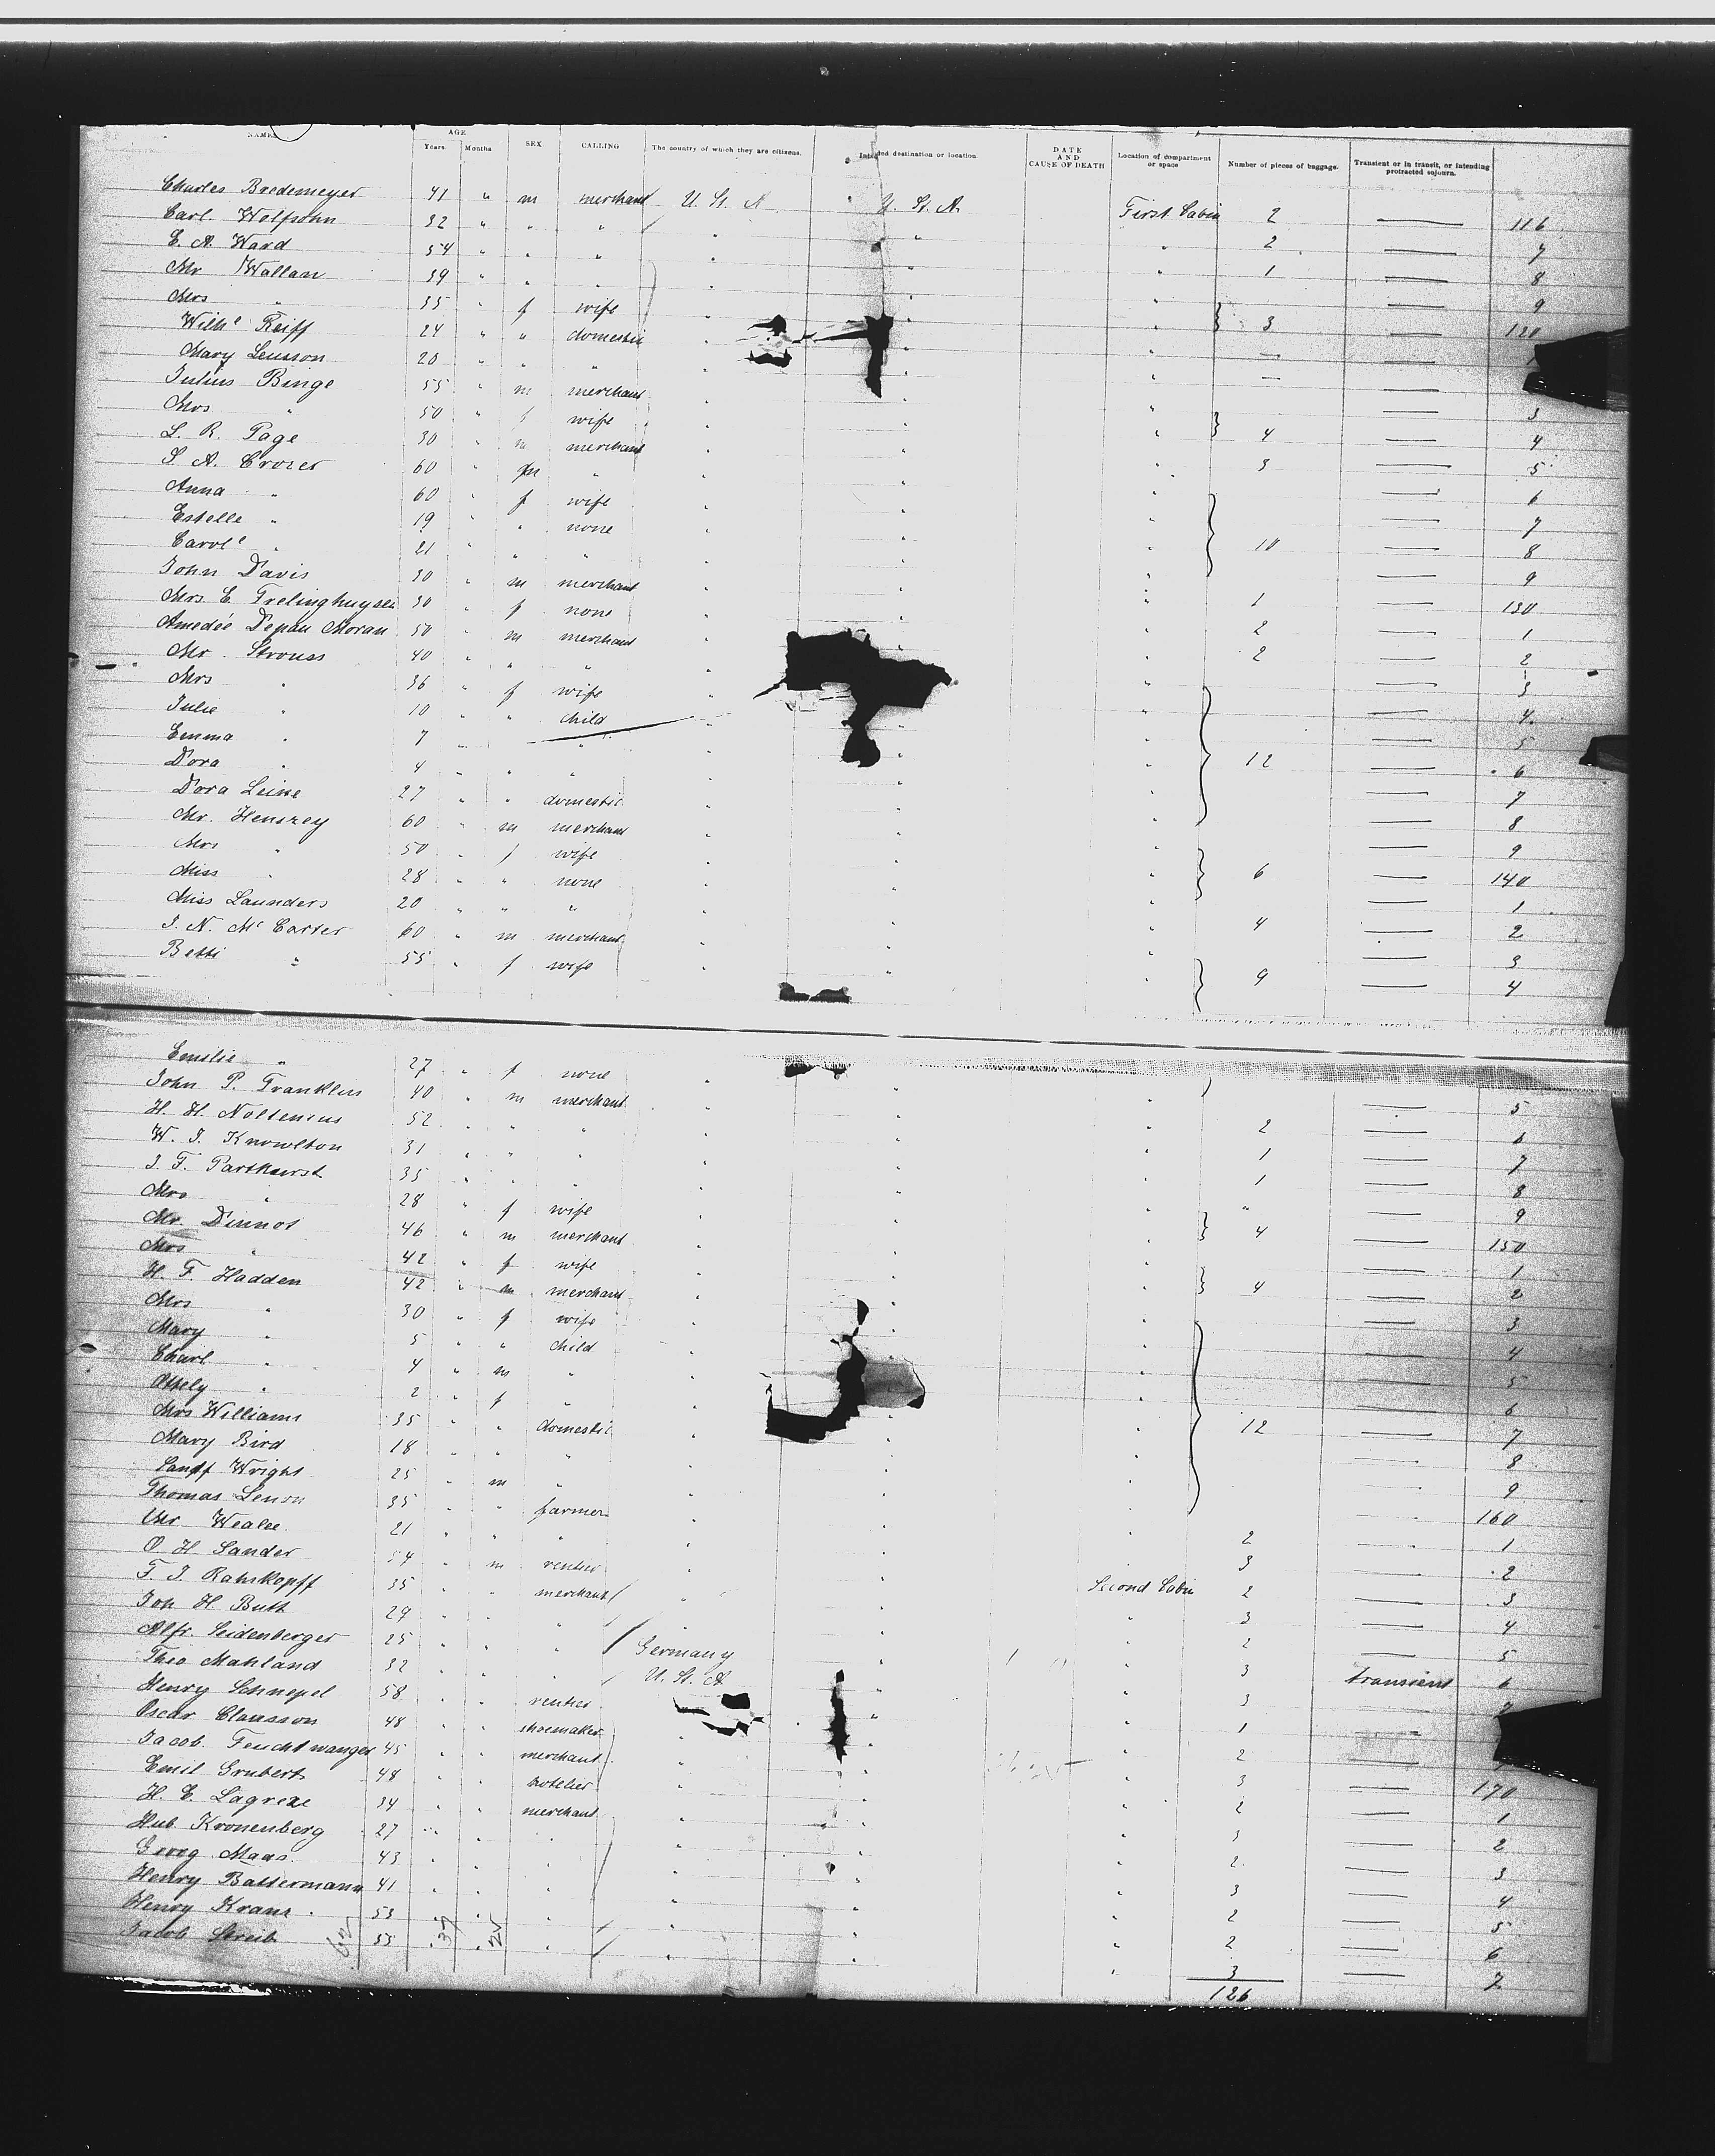 NAMES AGE Years Months SEX. CALLING The country of which they are citizens. Intended destination or location DATE AND CAUSE OF DEATH Location of compartment or space Number of pieces of baggage. Transient or in transit, or intending protracted sojourn.
Charles Bredemeyer 41 " m merchant U. St. A. U. St. A. First Cabin 2 — 116
Carl Wolfsohn 32 " " " " " " 2 — 7
E. A. Ward 54 " " " " " " 1 — 8
Mr Wallan 39 " " " " " " — 9
Mrs " 35 " f wife " " " 3 — 120
Wilhe Reiff 24 " " domestic " " " — —
Mary Leusson 20 " " " " " " — —
Julius Binge 55 " m merchant " " " — 3
Mrs " 50 " f wife " " " 4 — 4
L. R. Page 30 " m merchant " " " 3 — 5
S. A. Crozer 60 " m " " " " — 6
Anna " 60 " f wife " " " — 7
Estelle " 19 " " none " " " 10 — 8
Carole " 21 " " " " " " — 9
John Davis 30 " m merchant " " " 1 — 130
Mrs. E. Frelinghuysen 30 " f none " " " 2 — 1
Amedée Depau Moran 50 " m merchant " " " 2 — 2
Mr. Strouss 40 " " " " " — 3
Mrs " 36 " f wife " " — 4
Julie " 10 " " child " " " — 5
Emma " 7 " " " " " " 12 — 6
Dora " 4 " " " " " " — 7
Dora Leine 27 " " domestic " " " — 8
Mr. Henszey 60 " m merchant " " " — 9
Mrs " 50 " f wife " " " 6 — 140
Miss " 28 " " none " " " — 1
Miss Saunders 20 " " " " " " 4 — 2
J. N. Mc Carter 60 " m merchant " " " — 3
Betti " 55 " f wife " " " 9 — 4
Emilie " 27 " f none " " " — 5
John P. Franklin 40 " m merchant " " " 2 — 6
H. H. Noltenius 52 " " " " " " 1 — 7
W. J. Knowlton 31 " " " " " " 1 — 8
J. F. Parkhurst 35 " " " " " " " — 9
Mrs " 28 " f wife " " " 4 — 150
Mr. 46 " m merchant " " " — 1
Mrs " 42 " f wife " " " 4 — 2
H. F. Hadden 42 " m merchant " " " — 3
Mrs " 30 " f wife " " " — 4
Mary " 5 " " child " " " — 5
Charl. " 4 " m " " " " — 6
2 " f " " " " 12 — 7
Mrs Williams 35 " " domestic " " " — 8
Mary Bird 18 " " " " " " — 9
Wright 25 " m " " " " — 160
Thomas Lenon 35 " " farmer " " " 2 — 1
21 " " " " " " 3 — 2
O. H. Sander 54 " m rentier " " Second Cabin 2 — 3
F. J. Rahskopff 35 " " merchant " " " 3 — 4
Joh H. Butt 29 " " " " " " 2 — 5
Alfr. Seidenberger 25 " " " Germany " " 3 transient 6
Theo Mahland 32 " " " U. St. A. " " 3
Henry Schnepel 58 " " rentier " " 1 —
Oscar Claussen 48 " " shoemaker " " " 2 —
Jacob Feuchtwanger 45 " " merchant " " " 3 — 170
Emil Grubert 48 " " hotelier " " " 2 — 1
H. E. Lagreze 34 " " merchant " " " 3 — 2
Hub. Kronenberg 27 " " " " " " 2 — 3
Georg Maas 43 " " " " " " 3 — 4
Henry Battermann 41 " " " " " " 2 — 5
Henry Kranz 53 " " " " " " 2 — 6
Jacob Streib 55 " " " " " " 3 — 7
126